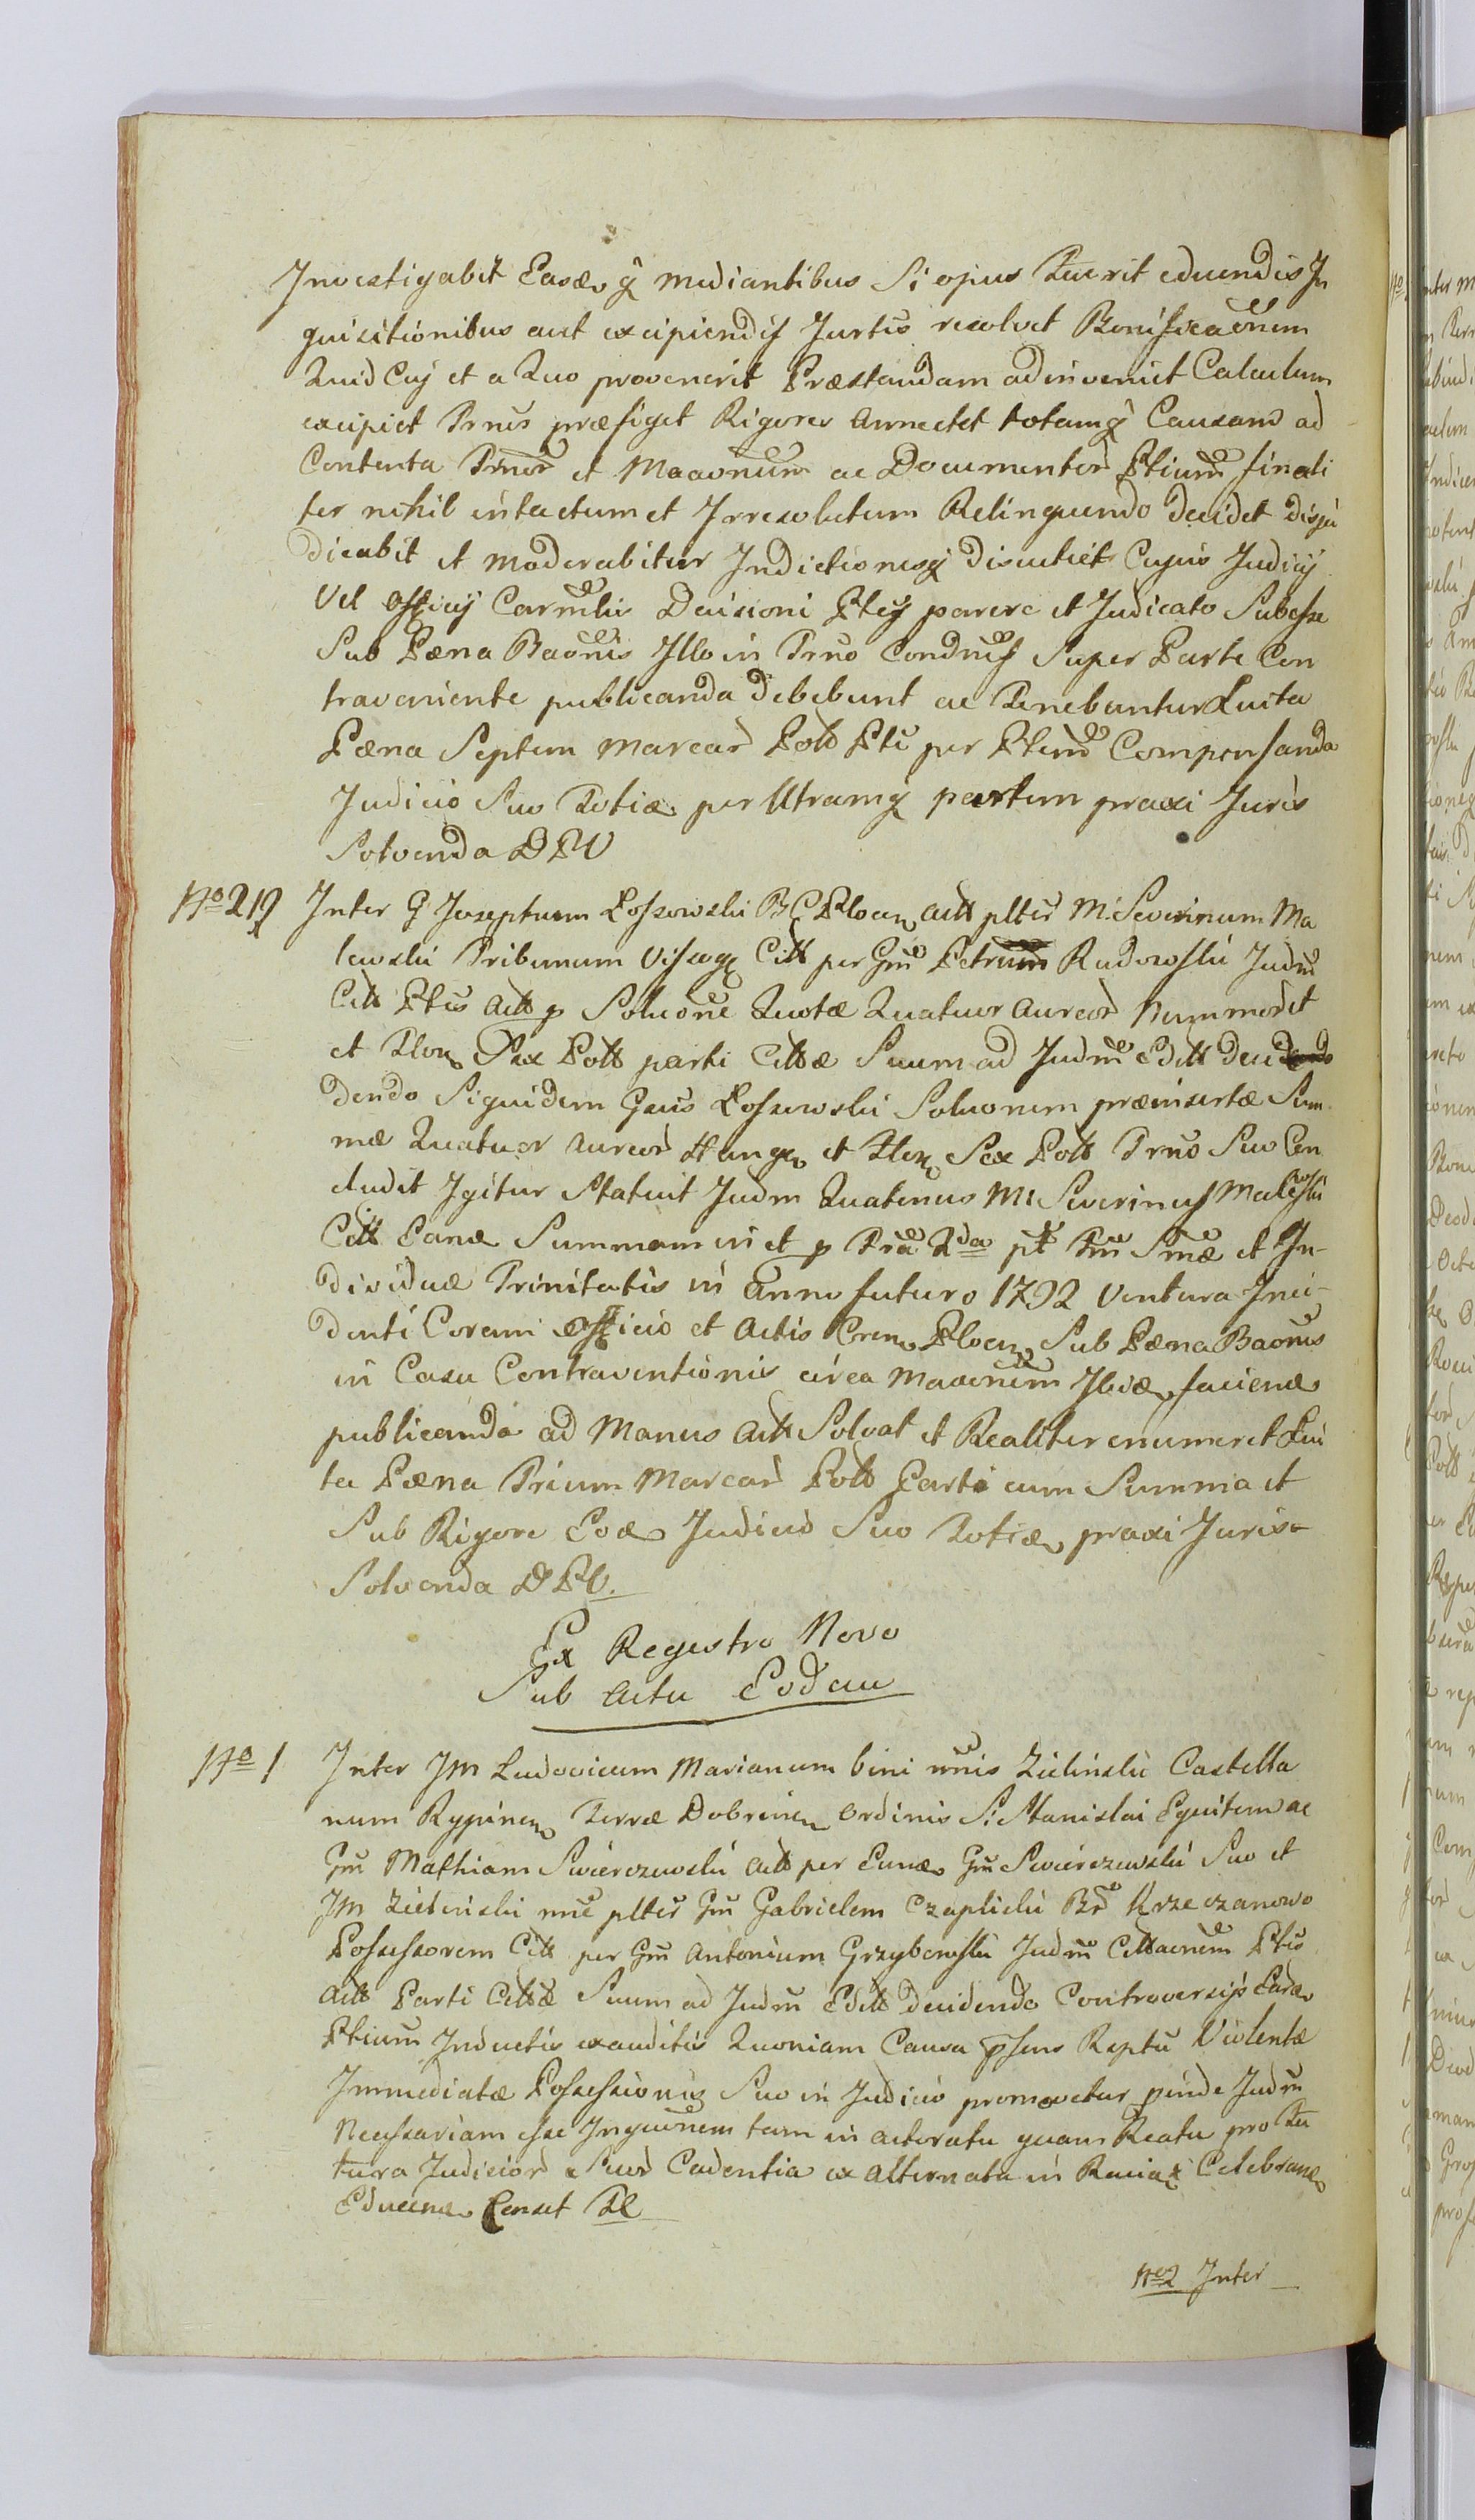 Investigabit Easdē q̃ mediantibus Si opus Fuerit educendis In
quisitionibus aut excipiendis Jurtis resolvet Bonificaõnem
Quid Cuj et a Quo provenerit Præstandam adinveniet Calculum
excipiet Trnūs præfiget Rigores annectet totamq̃ Causam ad
Contenta Trnor̃ et Maõnum ac Documentor̃ Ptium finali
ter nihil intactum et Irresolutum Relinquendo decidet disju
dicabit et moderabitur Indictionesq̃ discutiet Cujus Judicij
Vel officij Carmlis Decisioni Ptes parere et Judicato Subesse
Sub Pæna Baõnis Illo in Trno Condnis Super Parte Con
traveniente publicanda debebunt ac Tenebuntur Luita
Pæna Septem Marcar̃ Poll Pti per Ptem Compensanda
Judicio Suo Totiæ per Utramq̃ partem praxi Juris
Solvenda DPV
No 219 Inter G Josephum Lossowski BC Plocen Actt pltēr M. Severinum Ma
lewski Tribunum Vissogr Citt per Gm̃ Petrum Rudowski Judm̃
Citt Ptis Actt p Soluõne Quotæ Quatuor aureor̃ Nummor̃ et
et Flor Sex Poll parti Cittæ Suum ad Judm̃ Editt deci
dendo Siquidem Gsus Lossowski Soluõnem præinsertæ Sum
mæ Quatuor aureor̃ Hungr et Flor Sex Poll Trno Suo Con
cludit Igitur Statuit Judm Quatenus M. Severinus Malewski
Citt Eandē Summam in et p Fra 2da pt Fm̃ Smæ et In-
dividuæ Trinitatis in anno futuro 1792 Ventura Inci-
denti Coram officio et Actis Cren Plocen Sub Pæna Baõnis
in Casu Contraventionis circa Maõnem Ibidē faciend
publicanda ad Manus Actt Solvat et Realiter enumeret Lui
ta Pæna Trium Marcar̃ Poll Parti cum Summa et
Sub Rigore Eodē Judicio Suo Totidē praxi Juris
Solvenda DPV.
Ex Registro Novo
Sub actu Eodem
No 1 Inter JM Ludovicum Marianum bini nnis Zielinski Castella
num Rypinen Terræ Dobrinen Ordinis S. Stanislai Equitem ac
Gm̃ Mathiam Swierczewski Actt per Eundē Gm̃ Swierczewski Suo et
JM Zielinski nne pltēr Gm̃ Gabrielem Czaplicki Br̃ Krzeczanowo
Possessorem Citt per Gm̃ Antonium Grzybowski Judm̃ Cittaõnem Ptis
Actt Parti Cittæ Suum ad Judm̃ Editt decidendo Controversijs Earde
Ptium Inductis exauditis Quoniam Causa psens Raptū Violentæ
Immediatæ Possessionis Suo in Judicio promovetur pinde Judm̃
Necessariam esse Inquõnem tam in actoratu quam Reatu pro Fu
tura Judicior̃ Suor̃ Cadentia ex alternata in Raciaz Celebrand
Educend Censet Fl
No 2 Inter